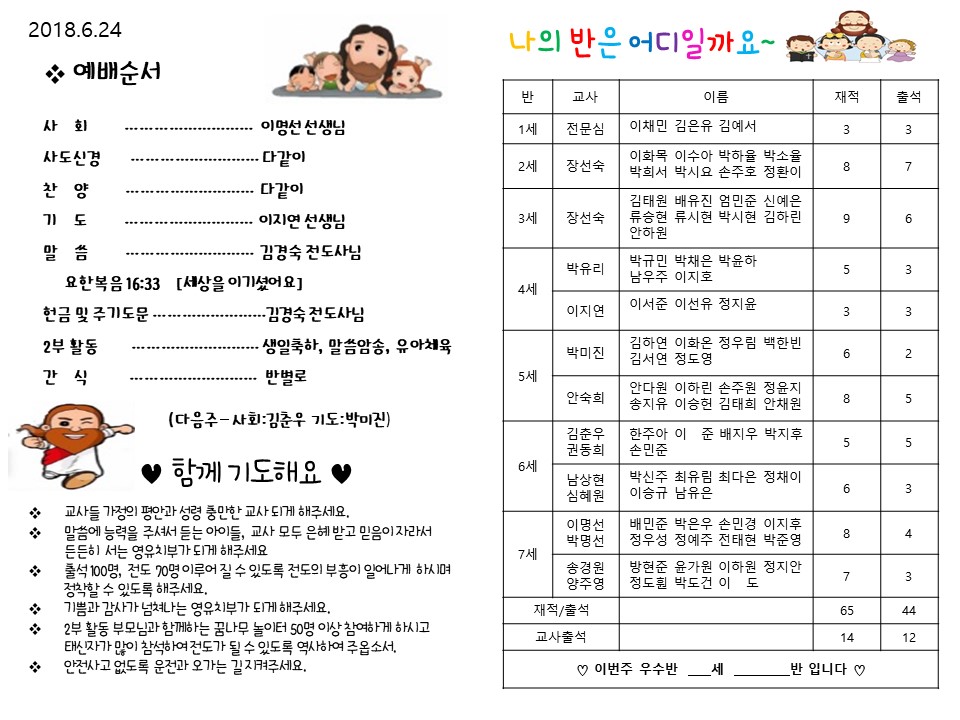 2018.6.24
❖ 예배순서
사 회 --------------------------- 이명선 선생님
사도신경 --------------------------- 다같이
찬 양 --------------------------- 다같이
기 도 --------------------------- 이지연 선생님
말 씀 --------------------------- 김경숙 전도사님
요한복음 16:33 [세상을 이기셨어요]
헌금 및 주기도문 ------------------------김경숙 전도사님
2부 활동 --------------------------- 생일축하, 말씀암송, 유아체육
간 식 --------------------------- 반별로
(다음주-사회:김춘우 기도:박미진)
♥ 함께 기도해요 ♥
❖ 교사들 가정의 평안과 성령 충만한 교사 되게 해주세요.
❖ 말씀에 능력을 주셔서 듣는 아이들, 교사 모두 은혜 받고 믿음이 자라서
든든히 서는 영유치부가 되게 해주세요
❖ 출석 100명, 전도 70명 이루어 질 수 있도록 전도의 부흥이 일어나게 하시며
정착할 수 있도록 해주세요.
❖ 기쁨과 감사가 넘쳐나는 영유치부가 되게 해주세요.
❖ 2부 활동 부모님과 함께하는 꿈나무 놀이터 50명 이상 참여하게 하시고
태신자가 많이 참석하여 전도가 될 수 있도록 역사하여 주옵소서.
❖ 안전사고 없도록 운전과 오가는 길 지켜주세요.
나의 반은 어디일까요~
반 교사 이름 재적 출석
1세 전문심 이채민 김은유 김예서 3 3
2세 장선숙 이화목 이수아 박하율 박소율 8 7
박희서 박시요 손주호 정환이
3세 장선숙 김태원 배유진 엄민준 신예은 9 6
류승현 류시현 박시현 김하린
안하원
4세 박유리 박규민 박채은 박윤하 5 3
남우주 이지호
이지연 이서준 이선유 정지윤 3 3
5세 박미진 김하연 이화온 정우림 백한빈 6 2
김서연 정도영
안숙희 안다원 이하린 손주원 정윤지 8 5
송지유 이승헌 김태희 안채원
6세 김춘우 한주아 이 준 배지우 박지후 5 5
권동희 손민준
남상현 박신주 최유림 최다은 정채이 6 3
심혜원 이승규 남유은
7세 이명선 배민준 박은우 손민경 이지후 8 4
박명선 정우성 정예주 전태현 박준영
송경원 방현준 윤가원 이하원 정지안 7 3
양주영 정도훤 박도건 이 도
재적/출석 65 44
교사출석 14 12
♡ 이번주 우수반 ___세 ________반 입니다 ♡